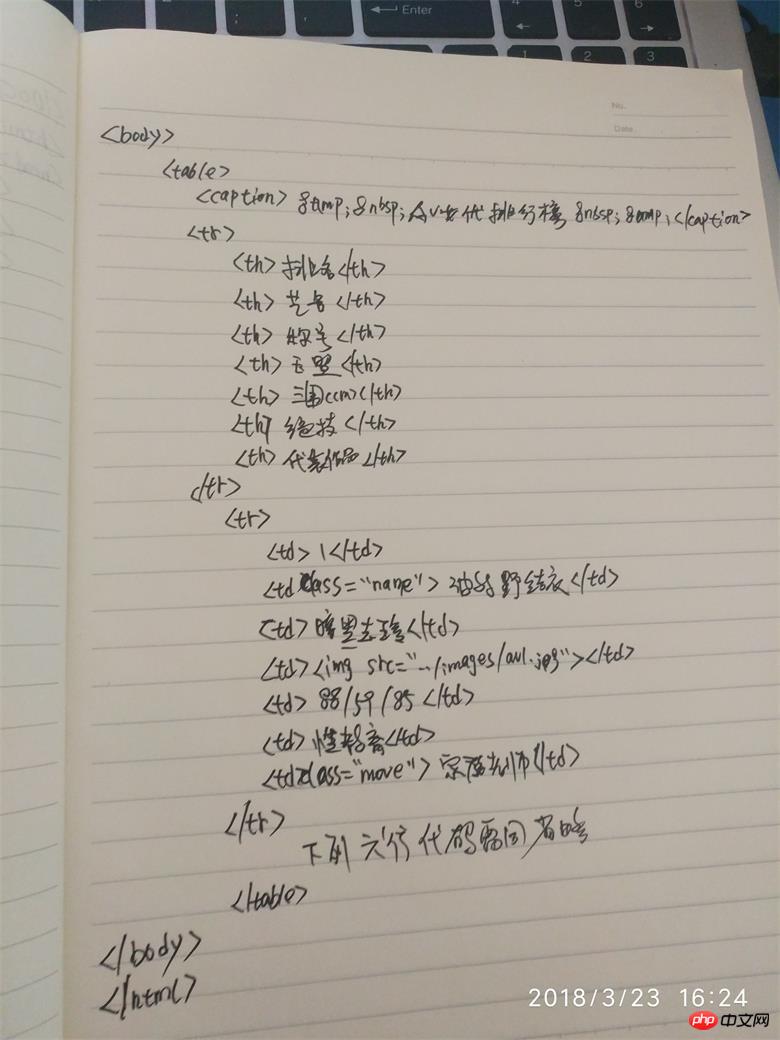 Enter
1
2
3
4
5
6
No.
Date.
<body>
<table>
<caption> &amp;&nbsp; 代排行榜 &nbsp;&amp;</caption>
<tr>
<th>排名</th>
<th>艺名</th>
<th>称号</th>
<th></th>
<th>三围(cm)</th>
<th>绝技</th>
<th>代表作品</th>
</tr>
<tr>
<td>1</td>
<td class="name">野结衣</td>
<td>暗黑</td>
<td><img src="../images/av1.jpg"></td>
<td>88/59/85</td>
<td></td>
<td class="move"></td>
</tr>
下列六行代码雷同省略
</table>
</body>
</html>
2018/3/23 16:24
php 中文网